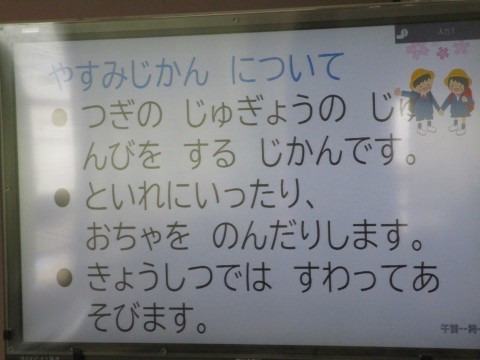 やすみじかん について
● つぎの じゅぎょうの じゅ
んびを する じかんです。
● といれにいったり、
おちゃを のんだりします。
● きょうしつでは すわってあ
そびます。